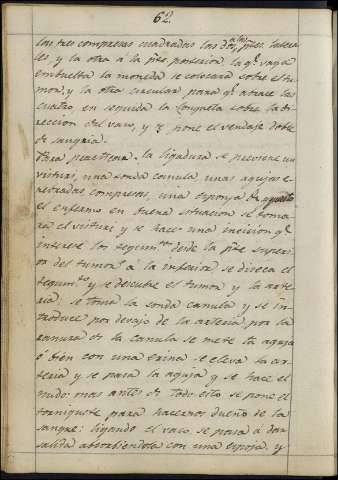 62.
las tres compresas cuadradas las dos a las ptes. latera
les, y la otra á la pte posterior, la qe. vaya
embuelta la moneda se colocará sobre el tu
mor, y la otra circular para qe. abrace las
cuatro, en seguida la Longueta sobre la di
reccion del vaso, y se pone el vendaje doble
de sangria.
Para practicar la ligadura se previene un
visturi, una sonda canula unas agujas e
compresas, una esponja
el enfermo en buena situacion se toma
ra el visturi y se hace una incision qe.
interese los tegumtos. desde la pte superi
or del tumor á la inferior, se diseca el
tegumto. y se descubre el tumor y la arte
ria, se toma la sonda canula y se in
troduce por devajo de la arteria por la
ranura de la canula se mete la aguja
ó bien con una erina se eleva la ar
teria y se pasa la aguja y se hace el
nudo: mas antes de todo esto se pone el
torniquete para hacernos dueño de la
sangre: ligando el vaso se pasa á dar
salida absorbiendola con una esponja, y